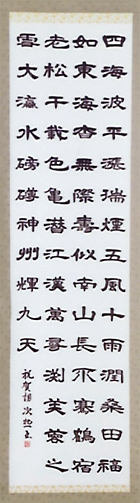 四海波平漲瑞煙五風十雨潤桑田福
如東海杳無際壽似南山長不騫鶴宿
老松千載色亀潜江漢萬尋淵芙蓉之
雪大瀛水磅礴神州輝九天
祝賀詞